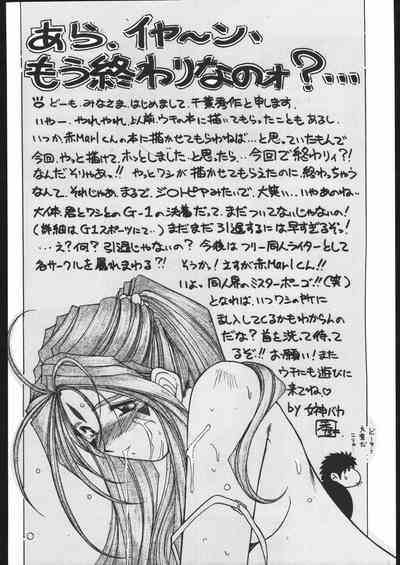 あら、イヤ〜ン、
もう終わりなのォ?…
どーも、みなさま、はじめまして、千葉秀作と申します。
いやー、やれやれ、以前、ウチの本に描いてもらったこともあるし、
いつか、赤Marlくんの本に描かせてもらわねば…と思っていたもんで
今回、やっと描けて、ホッとしました…と思ったら、今回で終わりィ?!
なんだそりゃあ。!! やっとワシが描かせてもらえたのに、終わっちゃう
なんて、それじゃあ、まるで、ジ〇トピアみたいで、大笑い…いやあのね。
大体、君とワシとのG-1の決着だって、まだついてないじゃないの!
(詳細はG1スポーツにて…) まだまだ引退するには早すぎるぞっ!
…え?何?引退じゃないの? 今後はフリー同人ライターとして
各サークルを荒れまわる?! そうか。!さすが赤Marlくん!!
いよ、同人界のミスターポーゴ!! (笑)
となれば、いつワシの所に
乱入してくるかもわからん
だな?首を洗って待て
るぞ!! お願い!また
ウチにも遊びに
来てね♡
by 女神バカ